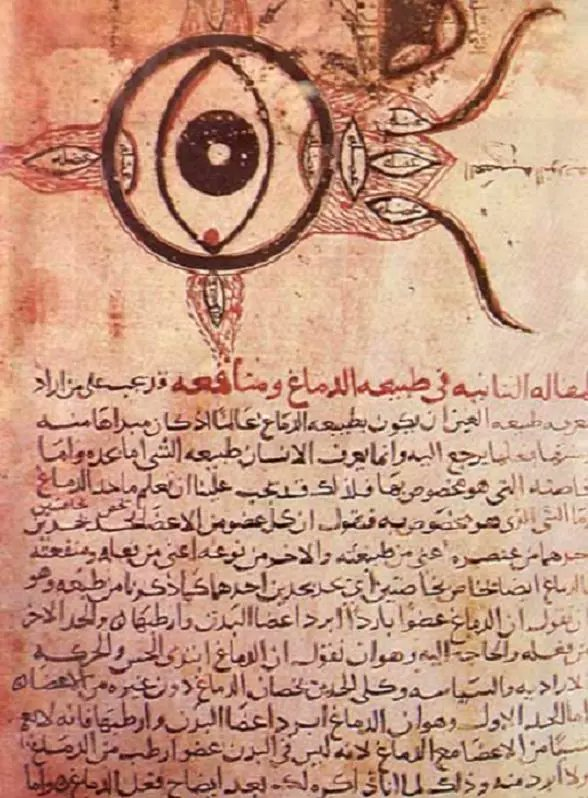 عضله
عضله
عضله
عضله
المقاله الثانيه في طبيعه الدماغ ومنافعه قد يجب على من اراد
معرفه طبيعه العين ان يكون بطبيعه الدماغ عالما اذ كان مبداها منه
يرجع اليه وانما يعرف الانسان طبيعه الشي اما بحده واما
بخاصته التي هو مخصوص بها فلذلك قد يجب علينا ان نعلم ما حد الدماغ
الشي الذي هو مخصوص به فنقول ان كل عضو من الاعضا يحد بحدين
احدهما من عنصره اعني من طبيعته والاخر من نوعه اعني من فعله ومنفعته
والدماغ ايضا يحد بحدين احدهما كما ذكرنا من طبعه وهو
ان نقول ان الدماغ عضوا باردا ابرد اعضا البدن وارطبها والحد الاخر
من فعله والحاجه اليه وهو ان نقول ان الدماغ ابتدى الحس والحركه
الاراديه والسياسه وكلى الحدين يخصان الدماغ دون غيره من الاعضا
اما الحد الاول وهو ان الدماغ ابرد اعضا البدن وارطبها فانه لا يعم
شيا من الاعضا مع الدماغ لانه ليس في البدن عضو ارطب من الدماغ
ولا ابرد منه وذلك لما انا ذاكره لك بعد ايضاح فعل الدماغ هو اما